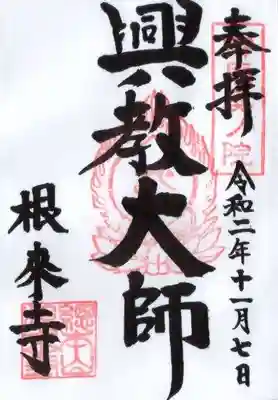 奉拝
令和二年十一月七日
興教大師
根來寺